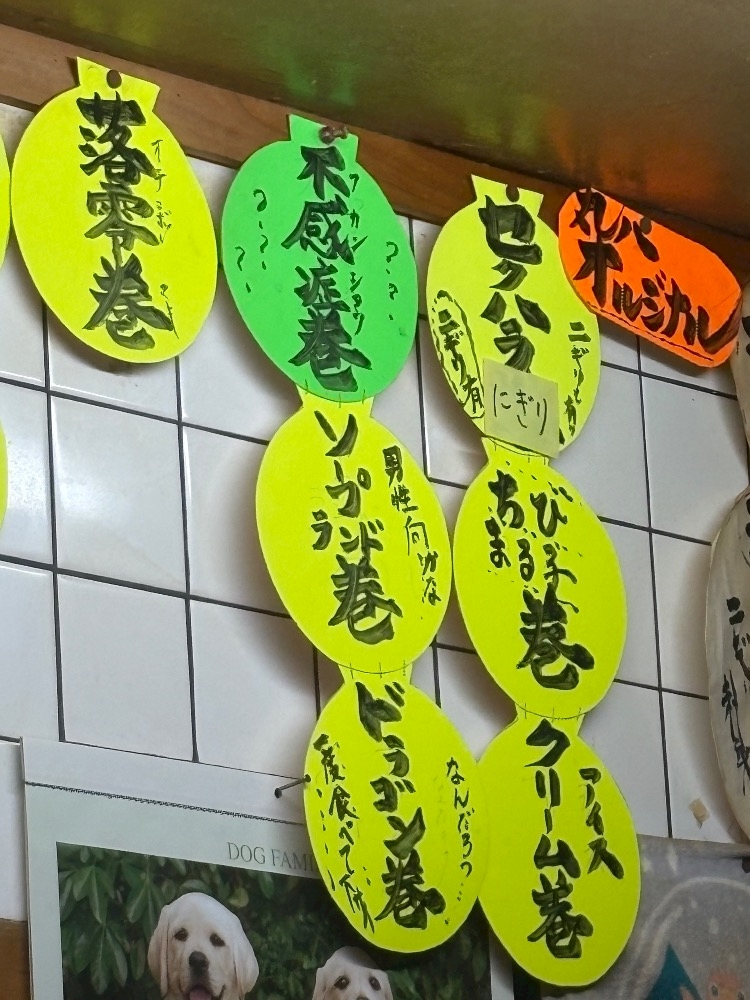 落零巻
オチコボレ
まき
不感症巻
フカンショウ
???
???
ソープ
ランド巻
男性向かな
ドラゴン巻
なんだろう…
一度食べて下さい
セクハラ
にぎり
ニぎりも有り
ニぎり有
びっ子
ちまる
巻
アイス
クリーム巻
丸バ
オルジカル
DOG FAMI